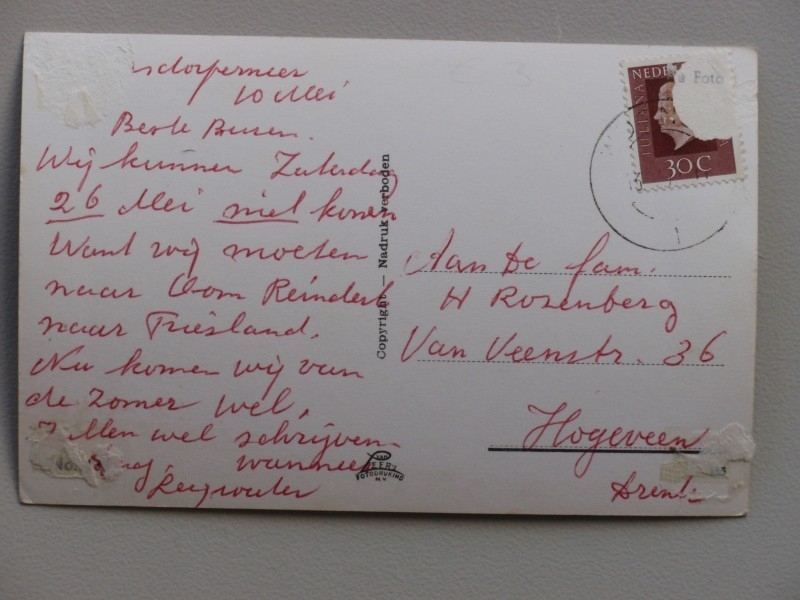 10 Mei
Beste Buren.
Wij kunnen Zaterdag
26 Mei niet komen
Want wij moeten
naar Oom Reindert
naar Friesland.
Nu komen wij van
de zomer wel,
Zullen wel schrijven
wanneer
Copyright — Nadruk verboden
VAN
FOTODRUKIND
N.V.
NEDE
Foto
JULIANA
30C
Aan De fam.
H Rozenberg
Van Veenstr. 36
Hogeveen
Drent